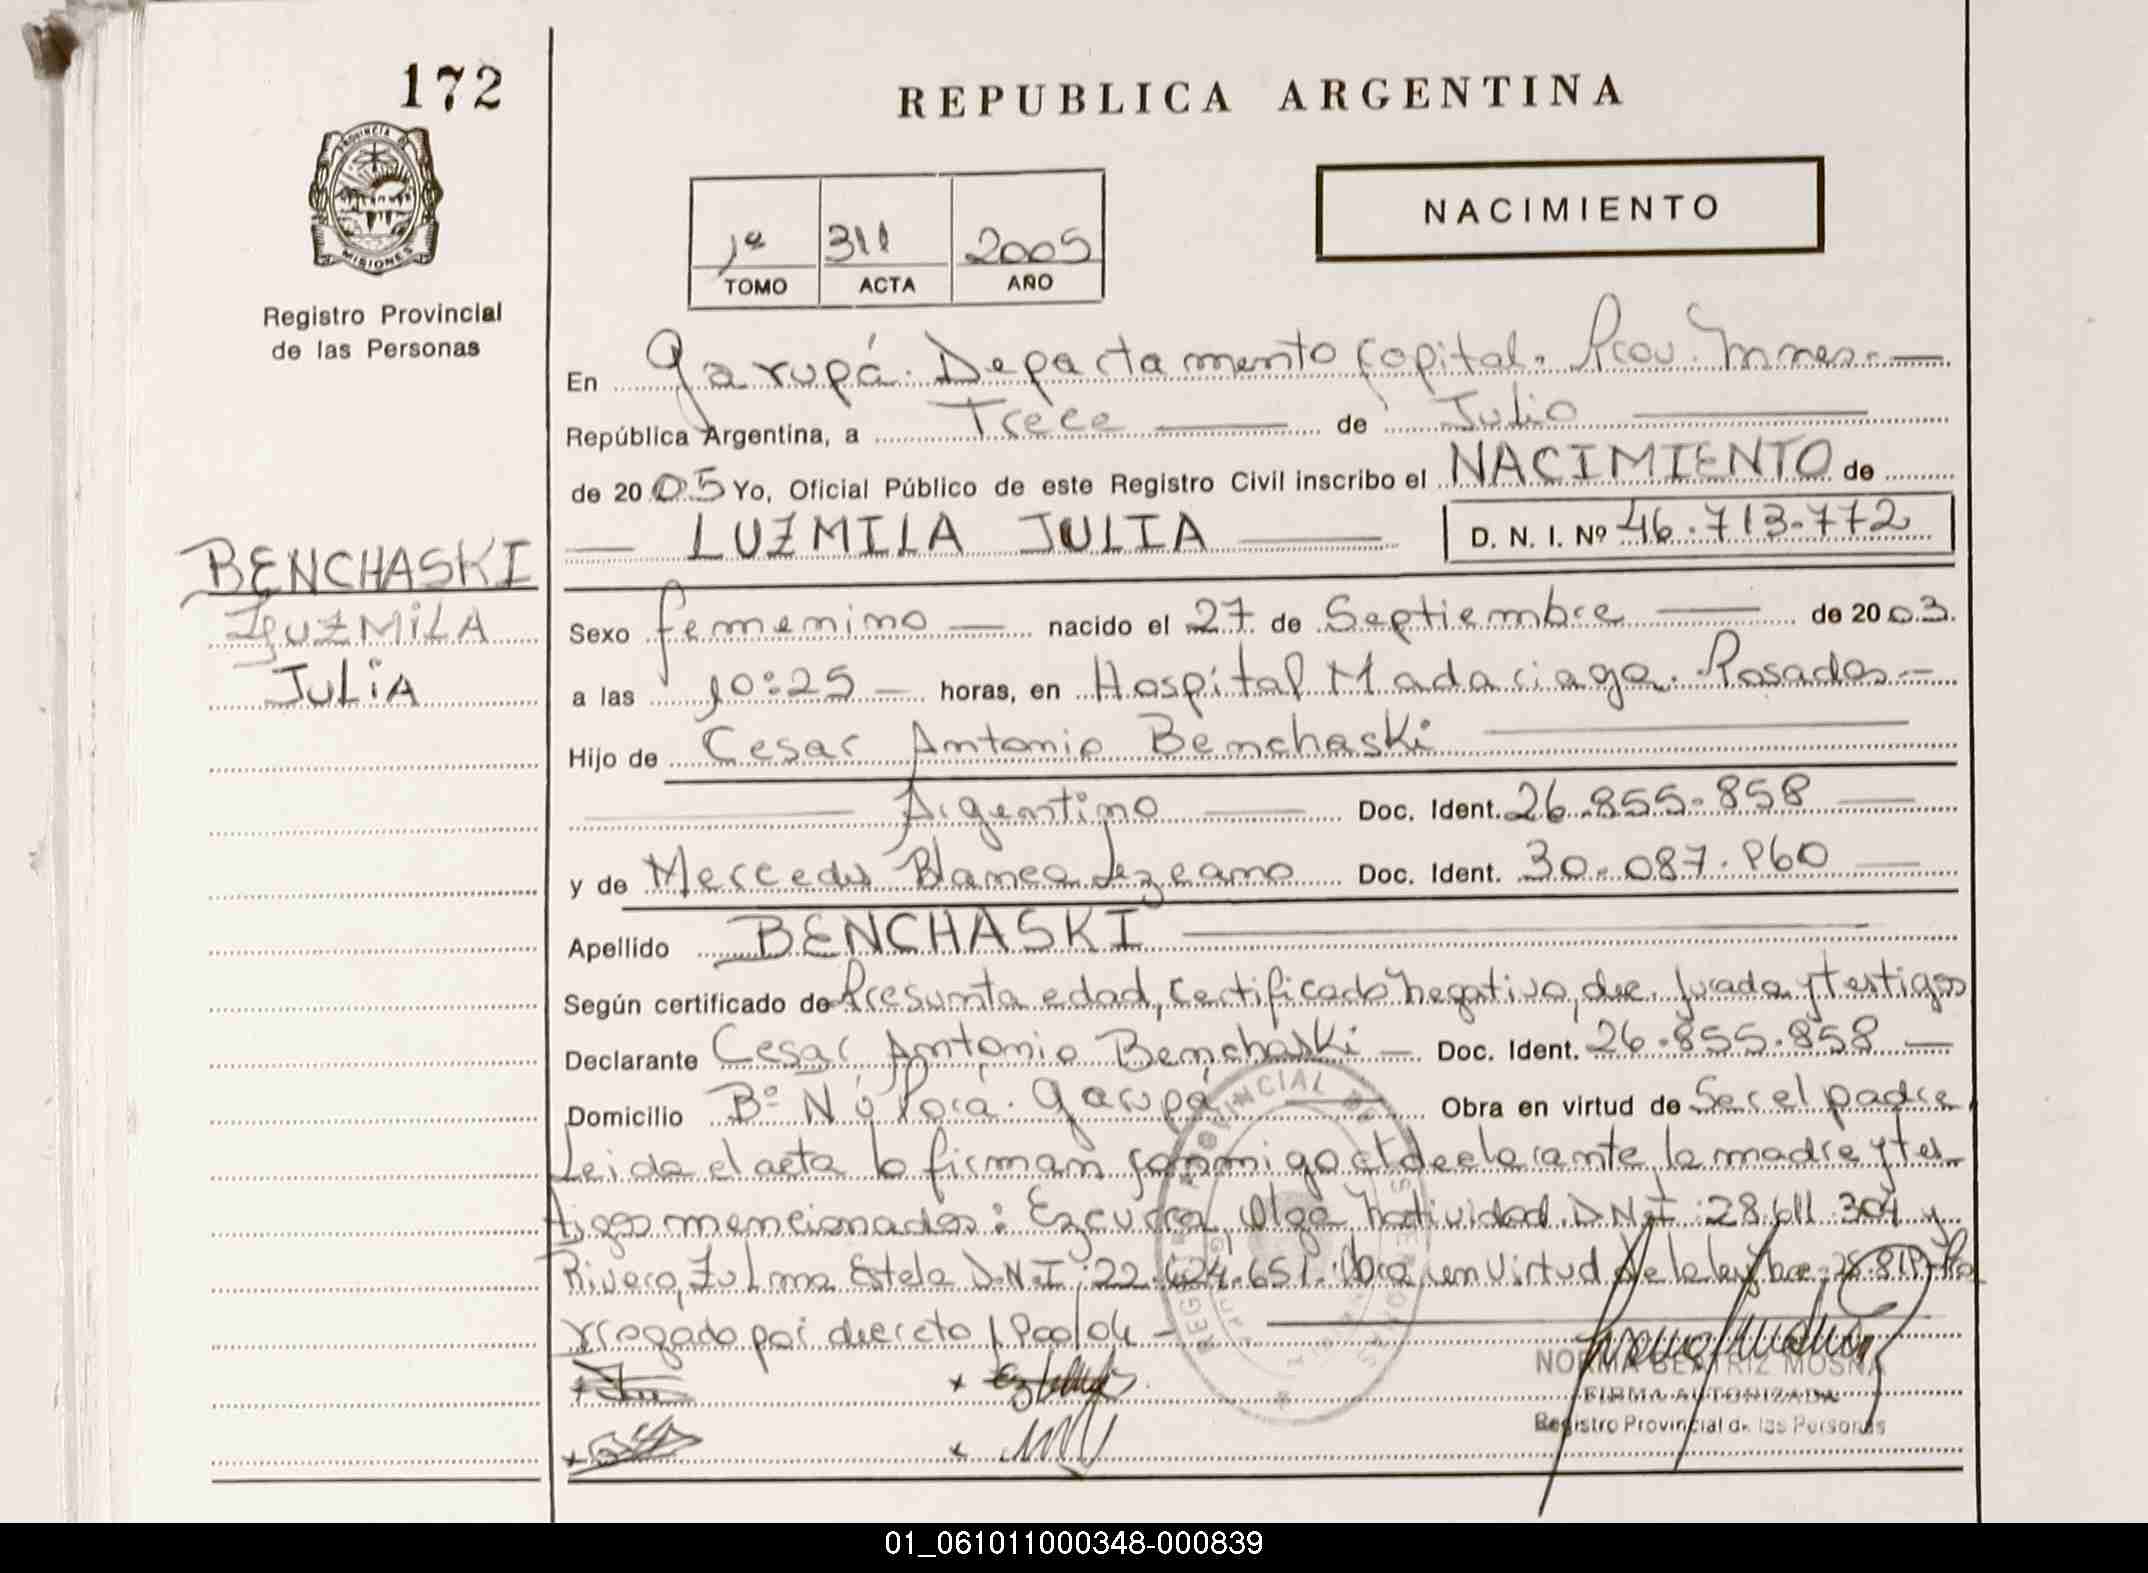 172
PROVINCIA D
MISIONES
Registro Provincial
de las Personas
REPUBLICA ARGENTINA
1º 311 2005
TOMO ACTA AÑO
NACIMIENTO
En Garupá. Departamento Capital. Prov. Mnes.
República Argentina, a Trece de Julio
de 2005 Yo, Oficial Público de este Registro Civil inscribo el NACIMIENTO de
LUZMILA JULIA D. N. I. Nº 46.713.772
BENCHASKI
LUZMILA
JULIA
Sexo femenino nacido el 27 de Septiembre de 2003.
a las 10:25 horas, en Hospital Madariaga. Posadas
Hijo de Cesar Antonio Benchaski
Argentino Doc. Ident. 26.855.858
y de Mercedes Blanca Lezcano Doc. Ident. 30.087.960
Apellido BENCHASKI
Según certificado de Presunta edad, Certificado Negativo, dec. Jurada y testigos
Declarante Cesar Antonio Benchaski Doc. Ident. 26.855.858
Domicilio Bº Ñú Porá. Garupá Obra en virtud de Ser el padre
Leida el acta lo firman conmigo el declarante, la madre y tes
tigos mencionados: Ezcurra, Olga Natividad D.N.I: 28.611.304 y
Rivero, Zulma Estela D.N.I: 22.424.651. Obra en Virtud de la ley 25.819 Pro
rrogado por decreto
NORMA BEATRIZ MOSNA
FIRMA AUTORIZADA
Registro Provincial de las Personas
01_061011000348-000839